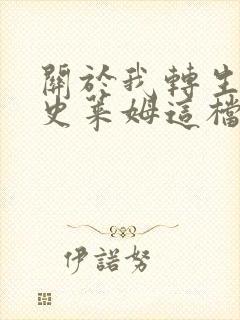 關於我轉生
史萊姆這檔
伊諾努